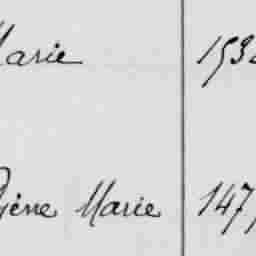 Marie 153
gène Marie 147